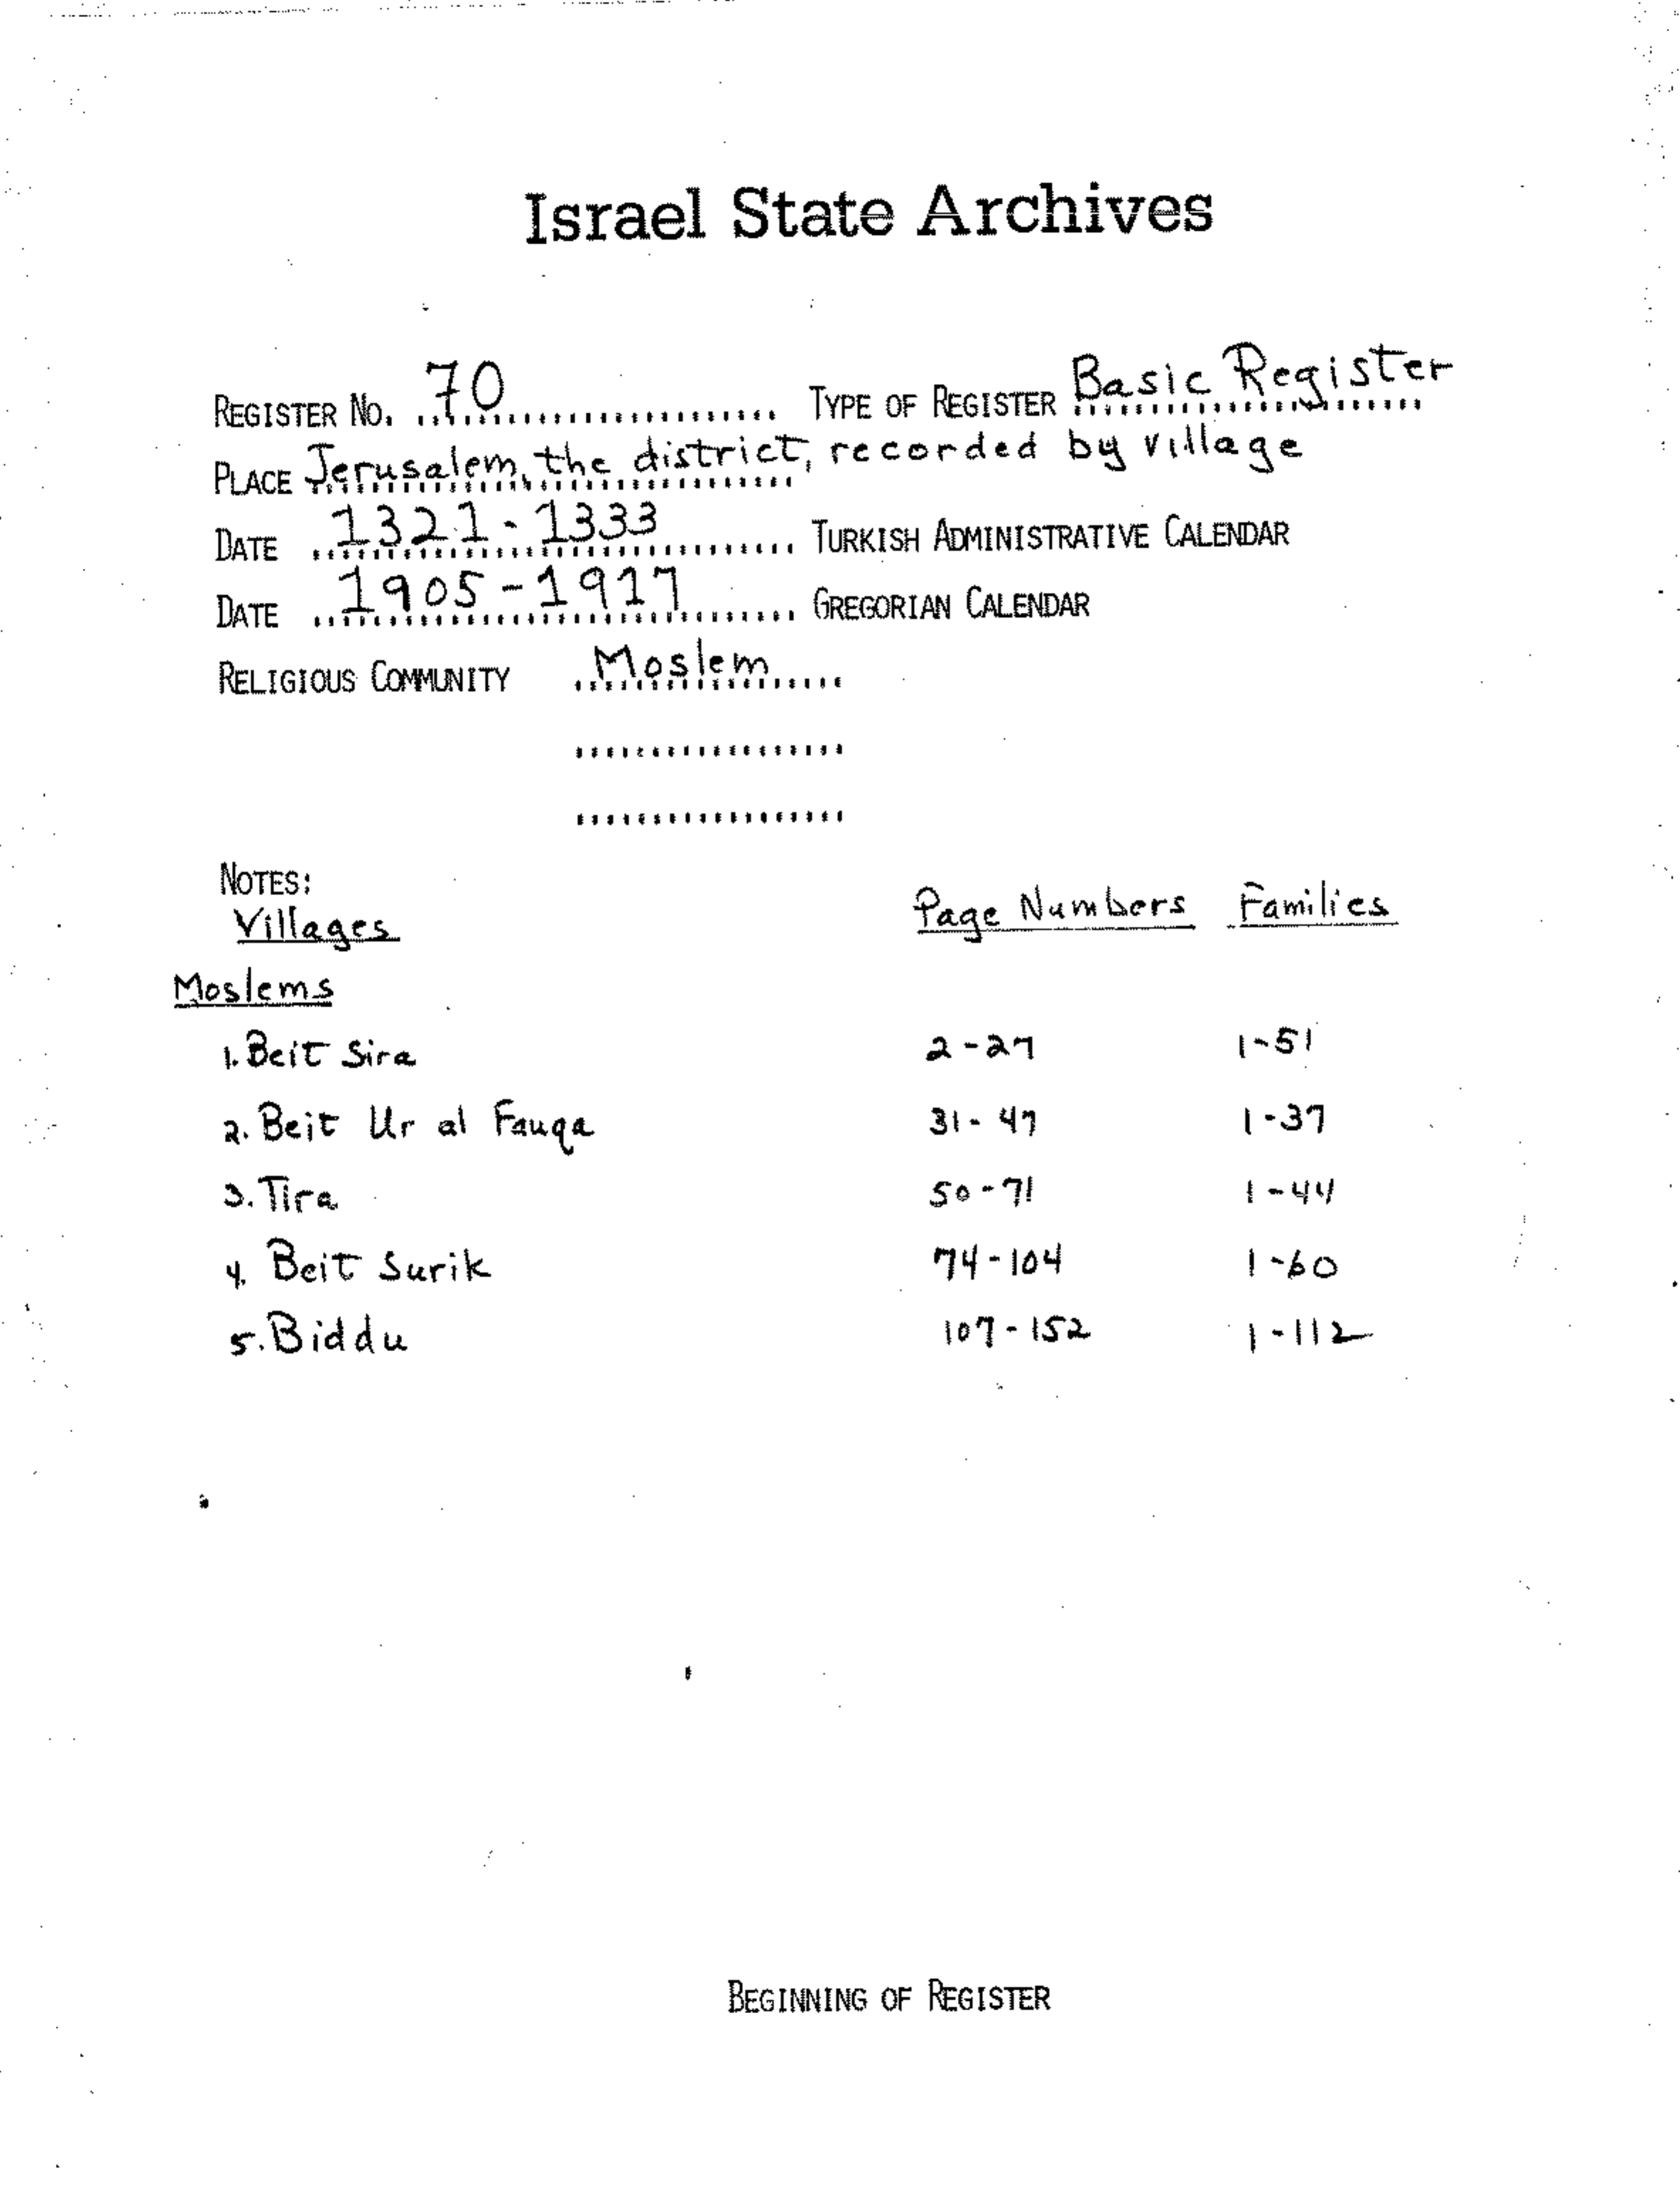 Israel State Archives
REGISTER NO. 70 TYPE OF REGISTER Basic Register
PLACE Jerusalem, the district, recorded by village
DATE 1321-1333 TURKISH ADMINISTRATIVE CALENDAR
DATE 1905-1917 GREGORIAN CALENDAR
RELIGIOUS COMMUNITY Moslem
NOTES:
Villages Page Numbers Families
Moslems
1. Beit Sira 2-27 1-51
2. Beit Ur al Fauqa 31-47 1-37
3. Tira 50-71 1-44
4. Beit Surik 74-104 1-60
5. Biddu 107-152 1-112
BEGINNING OF REGISTER